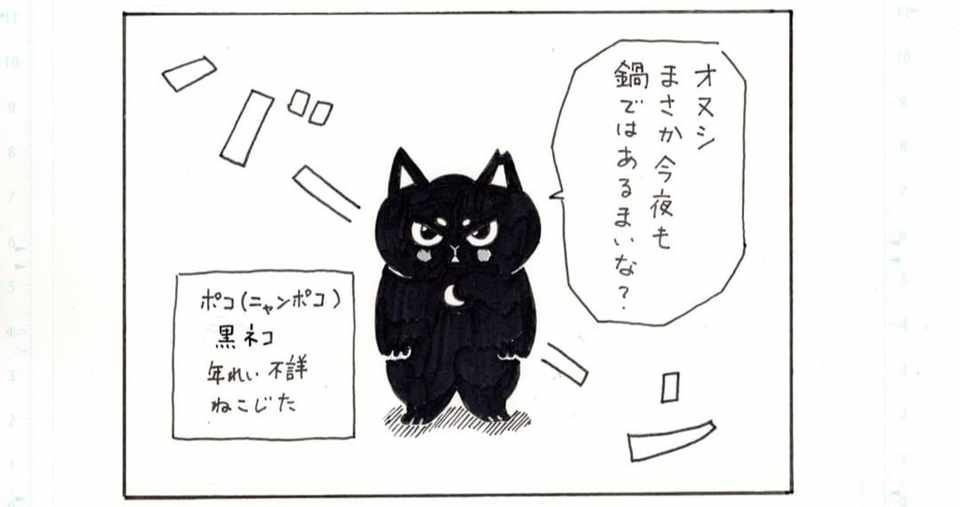 オヌシ
まさか今夜も
鍋ではあるまいな？
ババーン
ポコ(ニャンポコ)
黒ネコ
年れい不詳
ねこじた